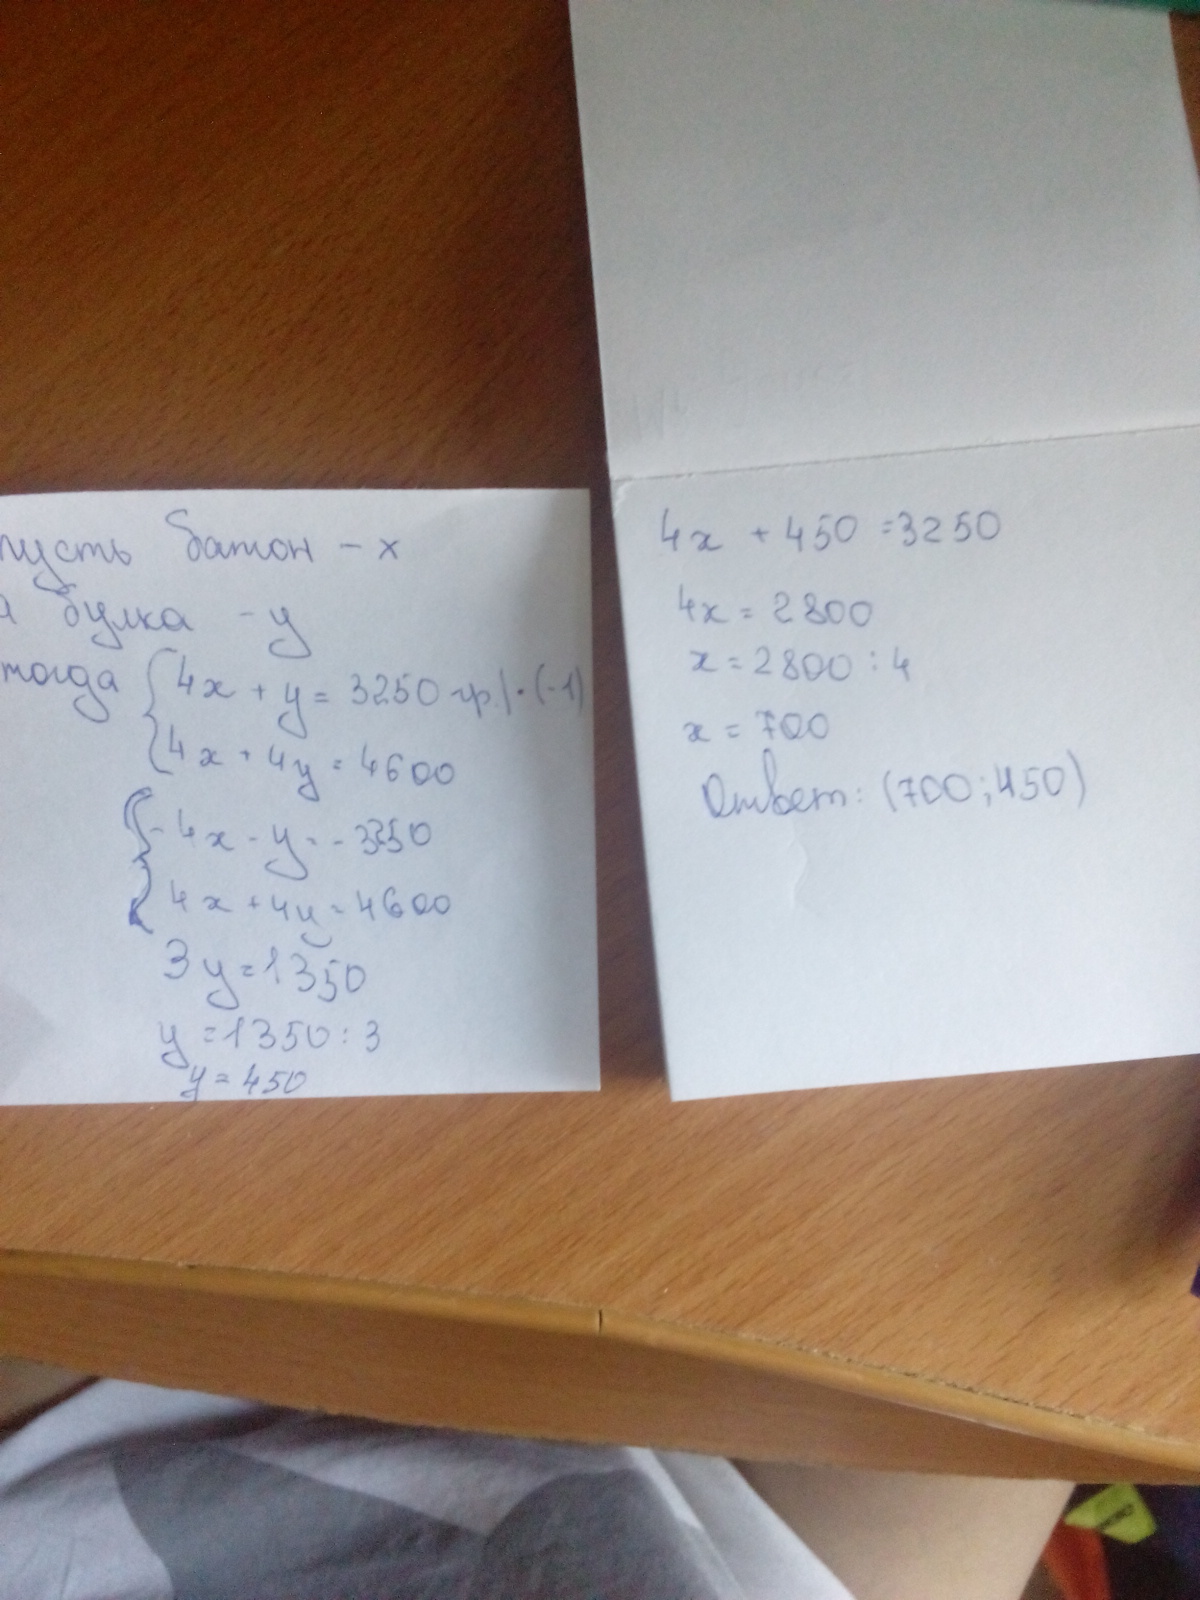 пусть батон - x
а булка - y
тогда 4x + y = 3250 гр. | · (-1)
4x + 4y = 4600
-4x - y = -3250
4x + 4y = 4600
3y = 1350
y = 1350 : 3
y = 450
4x + 450 = 3250
4x = 2800
x = 2800 : 4
x = 700
Ответ: (700; 450)